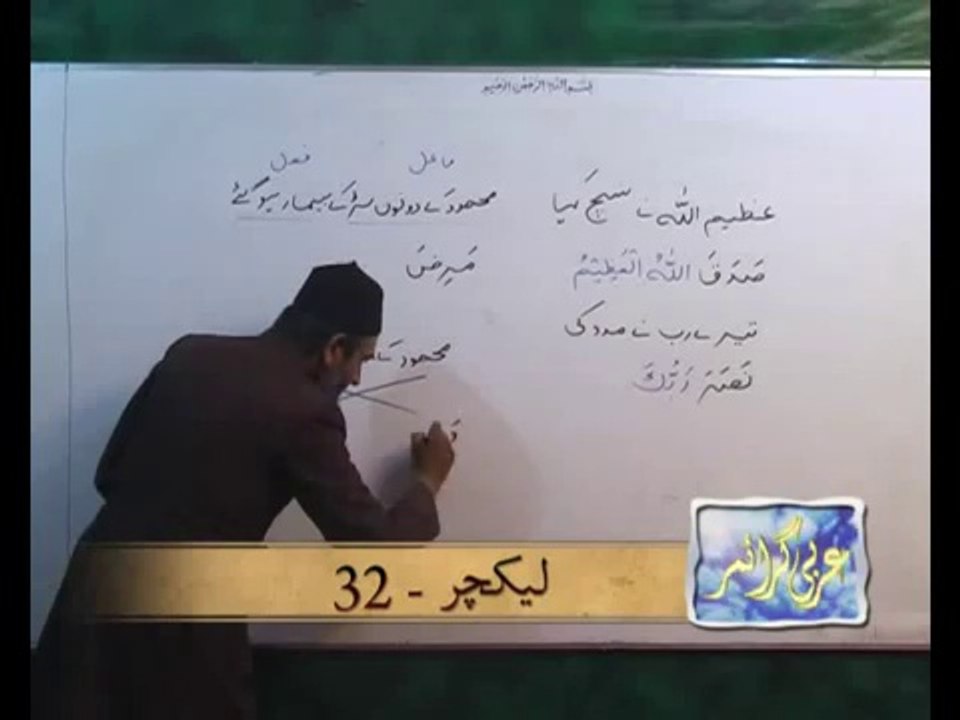 بسم اللہ الرحمٰن الرحیم
عظیم اللہ نے سَچ کہا
صَدَقَ اللّٰهُ الْعَظِيْمُ
تیرے رب نے مدد کی
نَصَرَ رَبُّكَ
فاعل فعل
محمود کے دونوں لڑکے بیمار ہو گئے
مَرِضَ
محمود کے
لیکچر - 32
عربی گرائمر